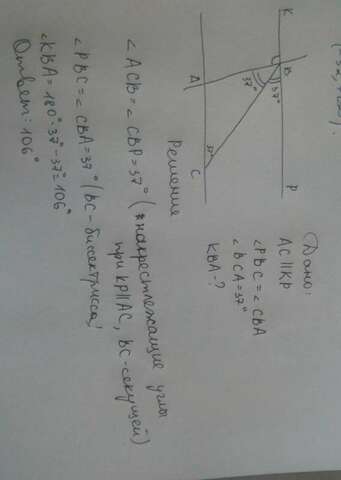 Дано:
AC∥KP
∠PBC=∠CBA
∠BCA=37°
KBA-?
K
B
37°
37°
A
37°
C
P
Решение
∠ACB=∠CBP=37° (накрестлежащие углы
при KP∥AC, BC-секущей)
∠PBC=∠CBA=37° (BC-биссектрисса)
∠KBA=180°-37°-37°=106°
Ответ: 106°